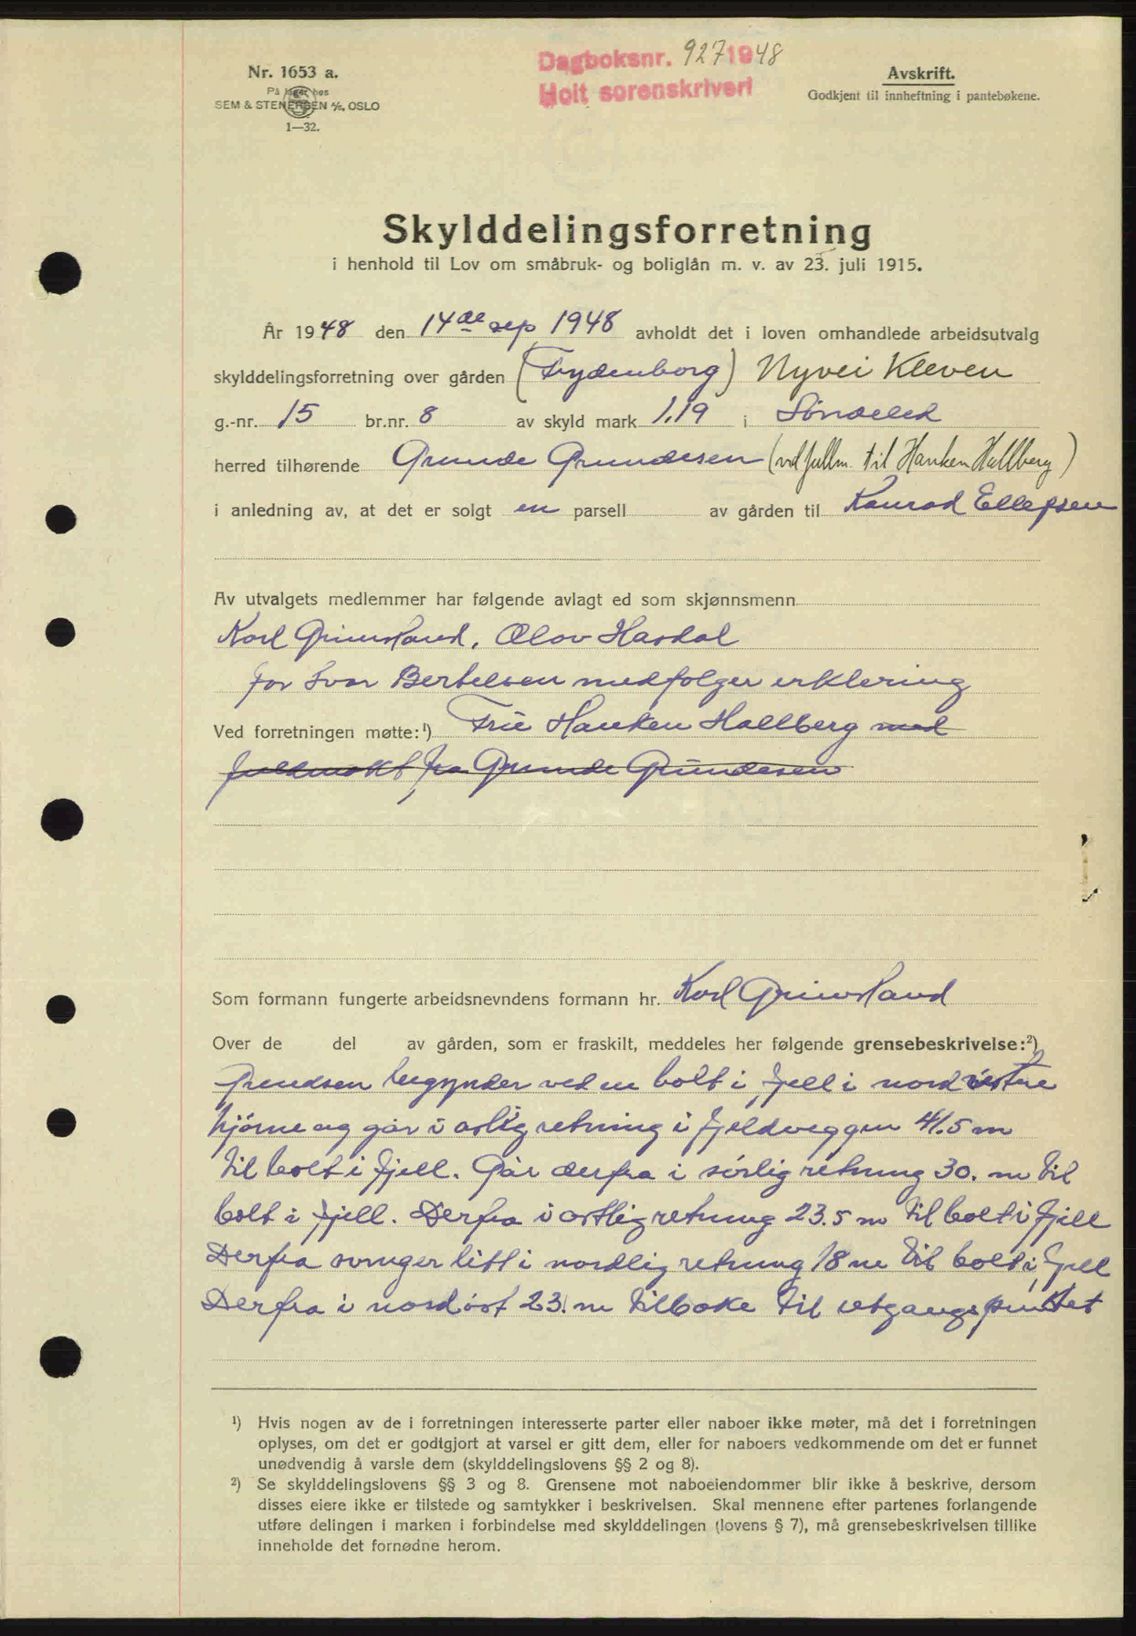 Dagboksnr. 927 1948
Holt sorenskriveri
Nr. 1653 a.
På lager hos
SEM & STENERSEN A/S, OSLO
1—32.
Avskrift.
Godkjent til innheftning i pantebøkene.
Skylddelingsforretning
i henhold til Lov om småbruk- og boliglån m. v. av 23. juli 1915.
År 1948 den 14de sep 1948 avholdt det i loven omhandlede arbeidsutvalg
skylddelingsforretning over gården (Frydenborg) Nyvei Kleven
g.-nr. 15 br.nr. 8 av skyld mark 1,19 i Søndeled
herred tilhørende Grunde Grundesen (ved fullm. til Hanken Hallberg)
i anledning av, at det er solgt en parsell av gården til Konrad Ellefsen
Av utvalgets medlemmer har følgende avlagt ed som skjønnsmenn
Karl Grimsland, Olav Hasdal
for Ivar Bertelsen medfølger erklering
Ved forretningen møtte:¹) Frue Hanken Hallberg med
fuldmakt fra Grunde Grundesen
Som formann fungerte arbeidsnevndens formann hr. Karl Grimsland
Over de del av gården, som er fraskilt, meddeles her følgende grensebeskrivelse:²)
Grendsen begynder ved en bolt i fjell i nordvestre
hjørne og går i østlig retning i fjeldveggen 41.5 m
til bolt i fjell. Går derfra i sørlig retning 30. m til
bolt i fjell. Derfra i østlig retning 23.5 m til bolt i fjell
Derfra svinger litt i nordlig retning 18 m til bolt i fjell
Derfra i nordøst 23. m tilbake til utgangspunktet
¹) Hvis nogen av de i forretningen interesserte parter eller naboer ikke møter, må det i forretningen
oplyses, om det er godtgjort at varsel er gitt dem, eller for naboers vedkommende om det er funnet
unødvendig å varsle dem (skylddelingslovens §§ 2 og 8).
²) Se skylddelingslovens §§ 3 og 8. Grensene mot naboeiendommer blir ikke å beskrive, dersom
disses eiere ikke er tilstede og samtykker i beskrivelsen. Skal mennene efter partenes forlangende
utføre delingen i marken i forbindelse med skylddelingen (lovens § 7), må grensebeskrivelsen tillike
inneholde det fornødne herom.